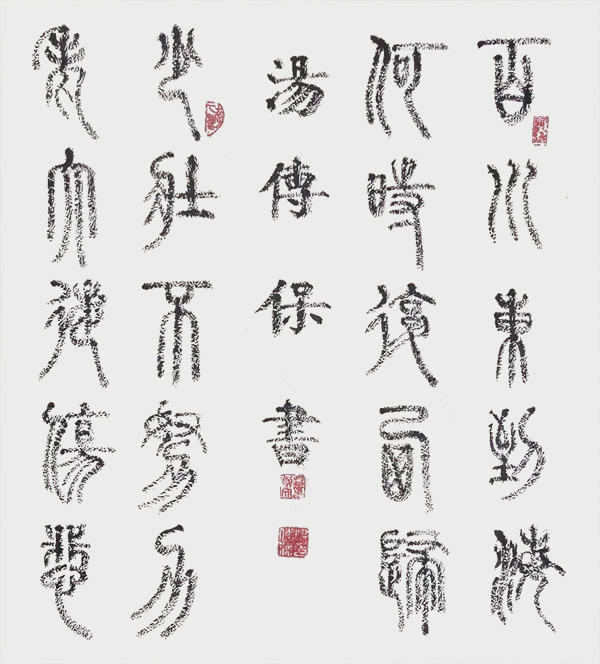 百川東到海
何時復西歸
湯傳保書
少壯不努力
老大徒傷悲